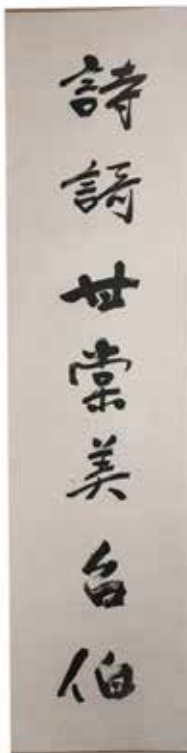 詩謌甘棠美召伯